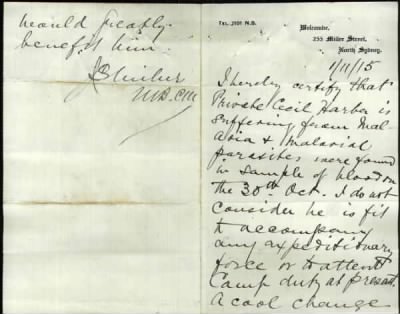 TEL. 2101 N.S.
Welcombe,
255 Miller Street,
North Sydney.
1/11/15
I hereby certify that
Private Cecil Harber is
suffering from Mal
aria & malarial
parasites were found
in sample of blood on
the 30th Oct. I do not
consider he is fit
to accompany
any expeditionary
force or to attend
Camp duty at present.
A cool change
would greatly
benefit him.
M.B. C.M.